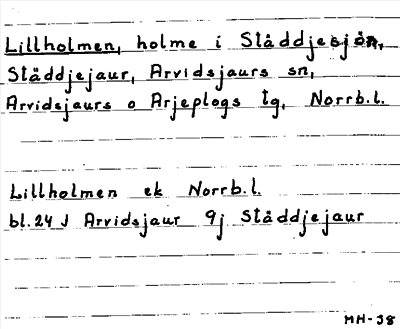 Lillholmen, holme i Ståddjesjön,
Ståddjejaur, Arvidsjaurs sn,
Arvidsjaurs o Arjeplogs tg, Norrb.l.
Lillholmen ek Norrb.l.
bl.24 J Arvidsjaur 9j Ståddjejaur
MH-38